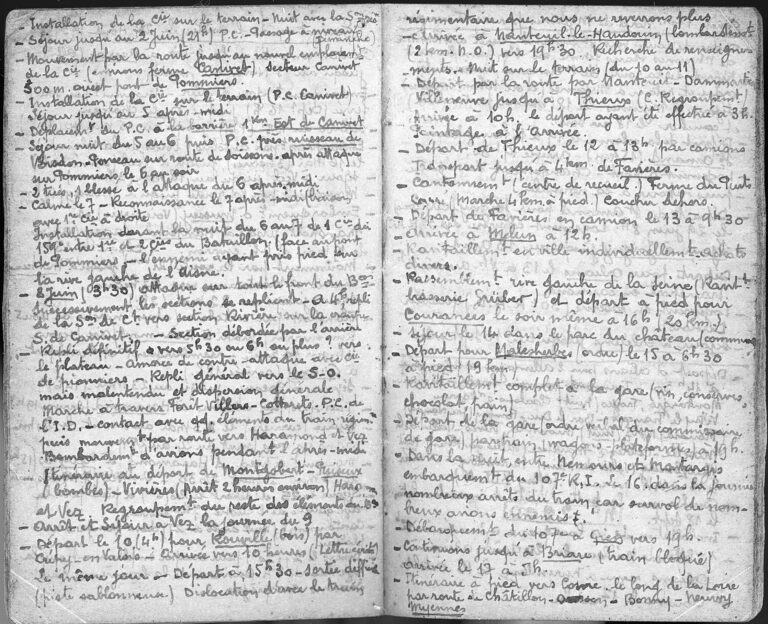 - Installation de la Cie sur le terrain - Nuit avec la 5me
- Séjour jusqu'au 2 juin (21h) P.C. - Passage à niveau
(dimanche)
- Mouvement par la route jusqu'au nouvel emplacemt
de la Cie (environs ferme Canivet) secteur Canivet
500 m. ouest pont de Pommiers.
- Installation de la Cie sur le terrain (P.C. Canivet)
Séjour jusqu'au 5 après-midi
- Déplacemt du P.C. à la barrière 1 km Est de Canivet
- Séjour nuit du 5 au 6 puis P.C. près ruisseau de
sur route de Soissons. après attaque
sur Pommiers le 6 au soir
- 2 tués, 1 blessé à l'attaque du 6 après-midi
- Calme le 7 - Reconnaissance le 7 après-midi (liaison
avec 1re Cie à droite
Installation durant la nuit du 6 au 7 de 1 Cie du
159e entre 1re et 2e Cies du Bataillon (face au pont
de Pommiers - l'ennemi ayant pris pied sur
la rive gauche de l'Aisne.
- 8 juin (3h30) attaque sur tout le front du Bon
Successivement les sections se replient - A 4h repli
de la 5me Ct vers section Rivière sur la
S. de Canivet - Section débordée par l'arrière
- Repli définitif vers 5h30 ou 6h ou plus ? vers
le plateau - Amorce de contre-attaque avec Cie
de pionniers - Repli général vers le S-O.
mais malentendu et dispersion générale
Marche à travers forêt Villers-Cotterets. P.C. de
l'I.D. - contact avec qq. éléments du train régim.
puis mouvemt par route vers Haramond et Vez
Bombardemt d'avions pendant l'après-midi
Itinéraire au départ de Montgobert - Puiseux
(bombes) - Vivières (Arrêt 2 heures environ) Hara-
et Vez Regroupemt du reste des éléments du Bon
- Arrêt et Séjour à Vez la journée du 9
- Départ le 10 (4h) pour Rouville (bois) par
Crépy-en-Valois - Arrivée vers 10 heures (Lettre écrite)
Le même jour - Départ à 15h30 - sortie diffic.
(piste sablonneuse) Dislocation d'avec le train
régimentaire que nous ne reverrons plus
- Arrivée à Nanteuil-le-Haudouin (bombardemt)
(2 km. N.O.) vers 19h30. Recherche de renseigne-
ments. Nuit sur le terrain (du 10 au 11)
- Départ par la route par Nanteuil - Dammartin
Villeneuve jusqu'à Thieux (C. Regroupemt)
Arrivée à 10h. le départ ayant été effectué à 3h.
Pointage à l'arrivée.
- Départ de Thieux le 12 à 13h par camions
Transport jusqu'à 4 km. de Favières.
- Cantonnemt (centre de recueil) Ferme du Puits
Carré (Marche 4 km. à pied) Coucher dehors.
- Départ de Favières en camion le 13 à 9h30
- Arrivée à Melun à 12h.
- Ravitaillemt en ville individuellemt. Achats
divers.
- Rassemblemt rive gauche de la Seine (Ravitt
brasserie Grüber) et départ à pied pour
Courances le soir même à 16h (20 km.)
- Séjour le 14 dans le parc du château (commune)
- Départ pour Malesherbes (ordre) le 15 à 6h30
à pied 19 km
- Ravitaillemt complet à la gare (vin, conserves,
chocolat, train)
- Départ de la gare (ordre verbal du commissaire
de gare) par train (wagons-plateformes) à 19h.
- Dans la nuit, entre Nemours et Montargis
embarquemt du 107e R.I. Le 16, dans la journée
nombreux arrêts du train car survol de nom-
breux avions ennemis.
- Débarquemt du 107e à Gien vers 19h.
- Continuons jusqu'à Briare (train bloqué)
arrivée le 17 à 5h.
- Itinéraire à pied vers Cosne. le long de la Loire
par route de Châtillon - Ousson - Bonny - Neuvy
Myennes